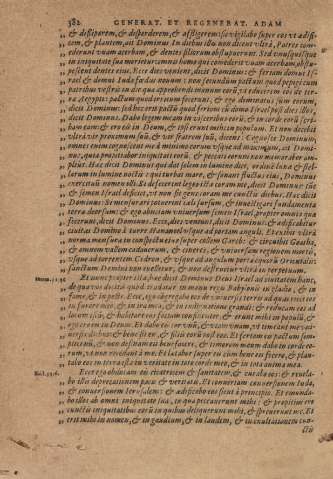 382 GENERAT. ET REGENERAT. ADAM
& dissiparem, & disperderem, & affligerem: sic vigilabo super eos vt ædifi-
cem, & plantem, ait Dominus. In diebus illis non dicent vltrà, Patres come-
derunt vuam acerbam, & dentes filiorum obstupuerunt. Sed vnusquisque
in iniquitate sua morietur: omnis homo qui comederit vuam acerbam, obstu-
pescent dentes eius. Ecce dies venient, dicit Dominus: & feriam domui Is-
rael & domui Iuda fœdus nouum: non secundum pactum quod pepigi cum
patribus vestris in die qua apprehendi manum eorū, vt educerem eos de ter-
ra Ægypti: pactum quod irritum fecerunt, & ego dominatus sum eorum,
dicit Dominus: sed hoc erit pactū quod feriam cū domo Israel post dies illos,
dicit Dominus: Dabo legem meam in visceribus eorū, & in corde eorū scri-
bam eam: & ero eis in Deum, & ipsi erunt mihi in populum. Et non docebit
vltrà vir proximum suū, & vir fratrem suū, dicens: Cognosce Dominum,
omnes enim cognoscent me à minimo eorum vsque ad maximum, ait Domi-
nus: quia propitiabor iniquitati eorū, & peccati eorum non memorabor am-
plius. Hæc dicit Dominus qui dat solem in lumine diei, ordinē lunæ & stel-
larum in lumine noctis: qui turbat mare, & sonant fluctus eius, Dominus
exercituum nomen illi. Si defecerint leges istæ coram me, dicit Dominus: tūc
& semen Israel deficiet, vt non sit gens coram me cunctis diebus. Hæc dicit
Dominus: Si mensurari potuerint cæli sursum, & inuestigari fundamenta
terræ deorsum: & ego abiiciam vniuersum semen Israel, propter omnia quæ
fecerunt, dicit Dominus. Ecce, dies veniunt, dicit Dominus: & ædificabitur
ciuitas Domino à turre Hananeel vsque ad portam anguli. Et exibit vltrà
norma mensuræ in conspectu eius super collem Gareb: & circuibit Goatha,
& omnem vallem cadauerum, & cineris, & vniuersam regionem mortis,
vsque ad torrentem Cedron, & vsque ad angulum portæ equorū Orientalis:
sanctum Domini non euelletur, & non destruetur vltrà in perpetuum.
Et nunc propter ista hæc dicit Dominus Deus Israel ad ciuitatem hanc,
de qua vos dicitis quòd tradatur in manu regis Babylonis in gladio, & in
fame, & in peste. Ecce, ego congregabo eos de vniuersis terris ad quas eieci eos
in furore meo, & in ira mea, & in indignatione grandi: & reducam eos ad
locum istū, & habitare eos faciam confidenter, & erunt mihi in populū, &
ego ero eis in Deum. Et dabo eis cor vnū, & viam vnam, vt timeant me vni-
uersis diebus: & bene sit eis, & filiis eorū post eos. Et feriam eis pactum sem-
piternū, & non desinam eis benefacere, & timorem meum dabo in corde eo-
rum, vt non recedant à me. Et lætabor super eis cùm bene eis fecero, & plan-
tabo eos in terra ista in veritate in toto corde meo, & in tota anima mea.
Ecce ego obducam eis cicatricem & sanitatem, & curabo eos: & reuela-
bo illis deprecationem pacis & veritatis. Et conuertam conuersionem Iuda,
& conuersionem Ierusalem: & ædificabo eos sicut à principio. Et emunda-
bo illos ab omni iniquitate sua, in qua peccauerunt mihi: & propitius ero
cunctis iniquitatibus eorū in quibus deliquerunt mihi, & spreuerunt me. Et
erit mihi in nomen, & in gaudium, & in laudem, & in exultationem cun-